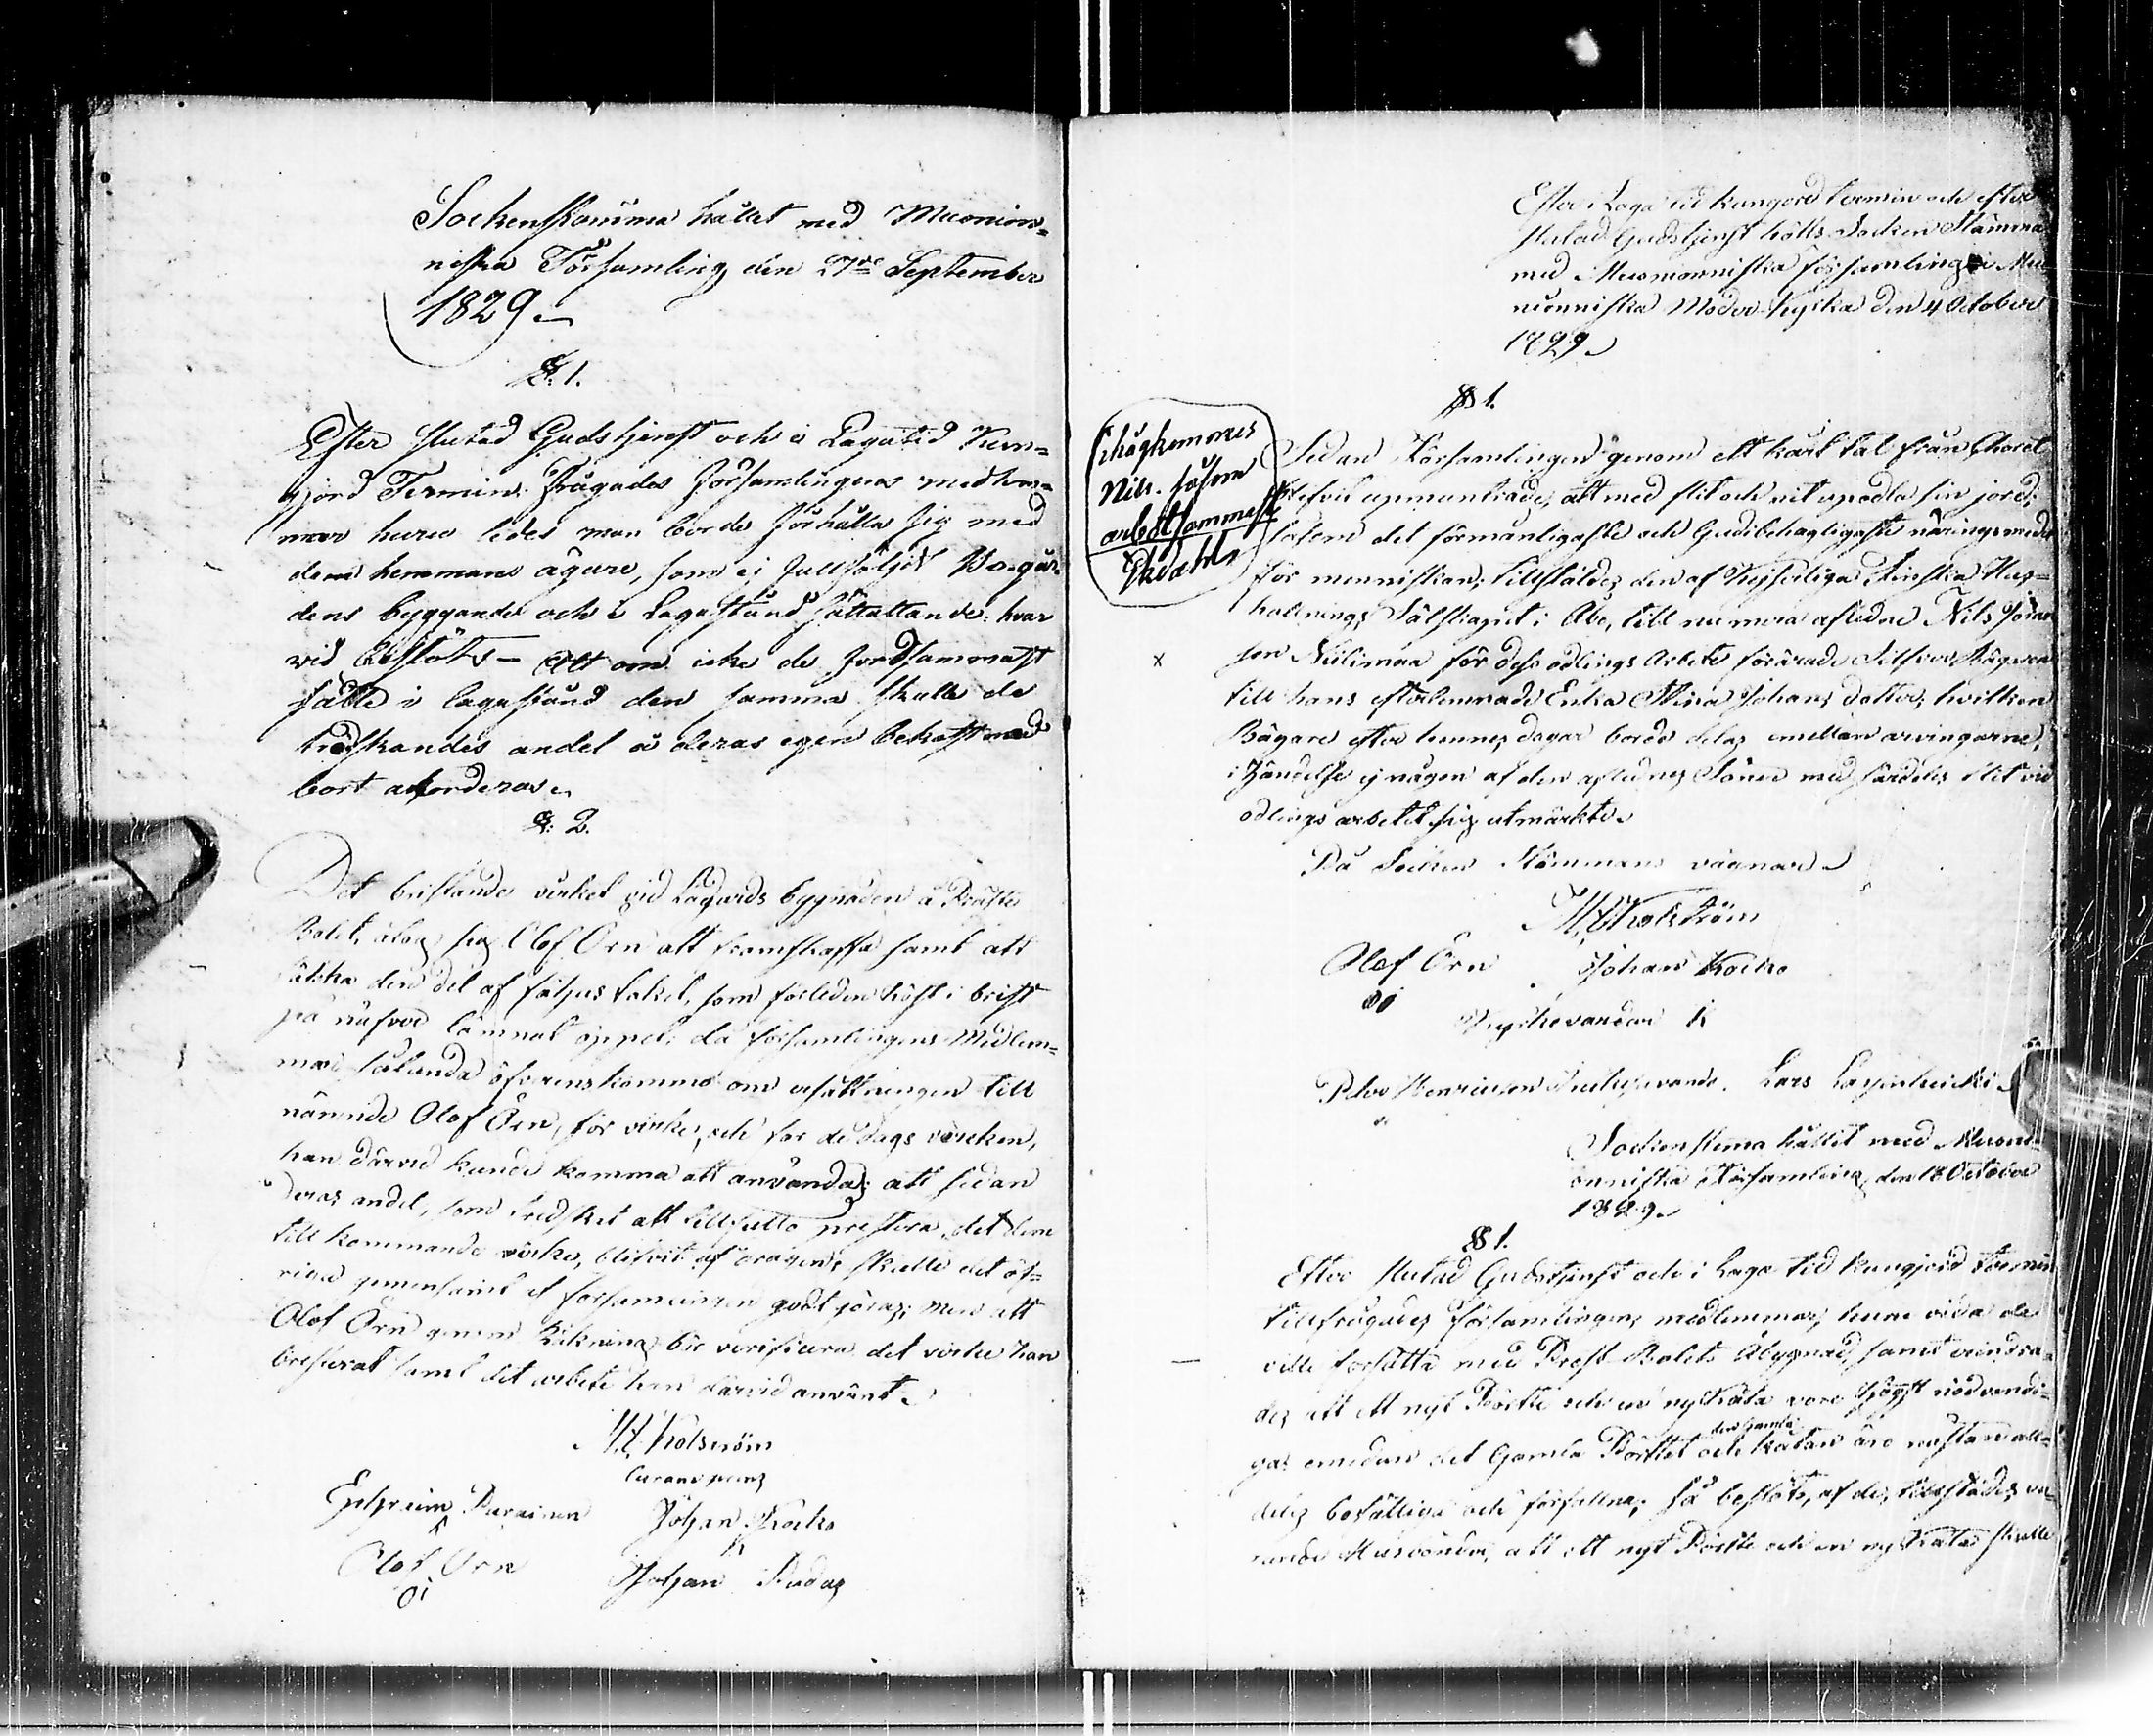 Sockenstämma hållit med Muonion-
niska Församling den 27de September
1829
§. 1.
Efter slutad Gudstjenst och i Lagatid Kun-
gjord Termin frågades Församlingens medlem-
mar huru ledes man borde förhålla sig med
dem hemmans ägare, som ei fullföljdt
dens byggande och i Lagastånd sättattande: hvar
vid beslöts — Att om icke de
sätte i lagastånd den samma skulle de
tredskandes andel å deras egen bekostnad
bort ackorderas.
§. 2.
Det bristande virket vid Ladugårds byggnaden å Präste
Bolet, åtog sig Olof Örn att framskaffa samt att
täkka den del af fähus taket, som förleden höst i brist
på näfver lämnat öppet; då församlingens Medlem-
mar sålunda öfverenskommo om ersättningen till
nämnde Olof Örn, för virke, och för de dags verken,
han därvid kunde komma att använda; att sedan
deras andel, som tredskat att tillfullo prestera det dem
tillkommande virke, blifvit af dragen, skulle det öf-
riga gemensamt af församlingen godt göras; men att
Olof Örn genom Räkning bör verificera det virke han
presterat samt det arbete han därvid använt.
M. Kolström
Ephraim Olof Örn
Johan Kocko
Johan Rudas

Efter i Laga tid kungjord termin och efter
slutad Gudstjenst hölts Socken Stämma
med Muonionniska församling i Muo-
nionniska Moder-kyrka den 4 October
1829
§ 1.
ihogkommes
Nils såsom
arbetsammest
Sedan Församlingen genom ett kårt tal från Choret
blifvit upmuntrade, att med flit och nit upodla sin jord,
såsom det förmånligaste och Gudi behagligaste näringsmedel
för menniskan; tillställdes den af Kejserliga Finska Hus-
hållnings Sälskapet i Åbo, till numera afledne Nils Johan
son Niilimaa för dess odlings Arbete förärade Silfver Bägaren
till hans efterlemnade Enka Stina Johans dotter, hvilken
Bägare efter hennes dagar borde delas emellan arvingarne,
i händelse ej någon af den aflednes Söner med särdeles flit vid
odlings arbetet sig utmärkte.
x
På Socken Stämmans vägnar
M. Kolström
Olof Örn Johan Kocko
Petter Henricsson Lars
Sockenstäma hållit med Muoni-
onniska Församling den 18 October
1829
§ 1.
Efter slutad Gudstjenst och i Laga tid kungjord termin
tillfrågades församlingens medlemmar, huru vida de
ville fortsätta med Prest Bolets Åbyggnad, samt
des att ett nyt Pörtte och en ny Kåta vore högst nödvendi-
ga: emedan det Gamla Pörttet och den gamla kåtan äro nästan all-
deles bofälliga och förfallna; så beslöts, af de tillstädes va-
rande Husbönder, att ett nyt Pörtte och en ny Kåta skulle